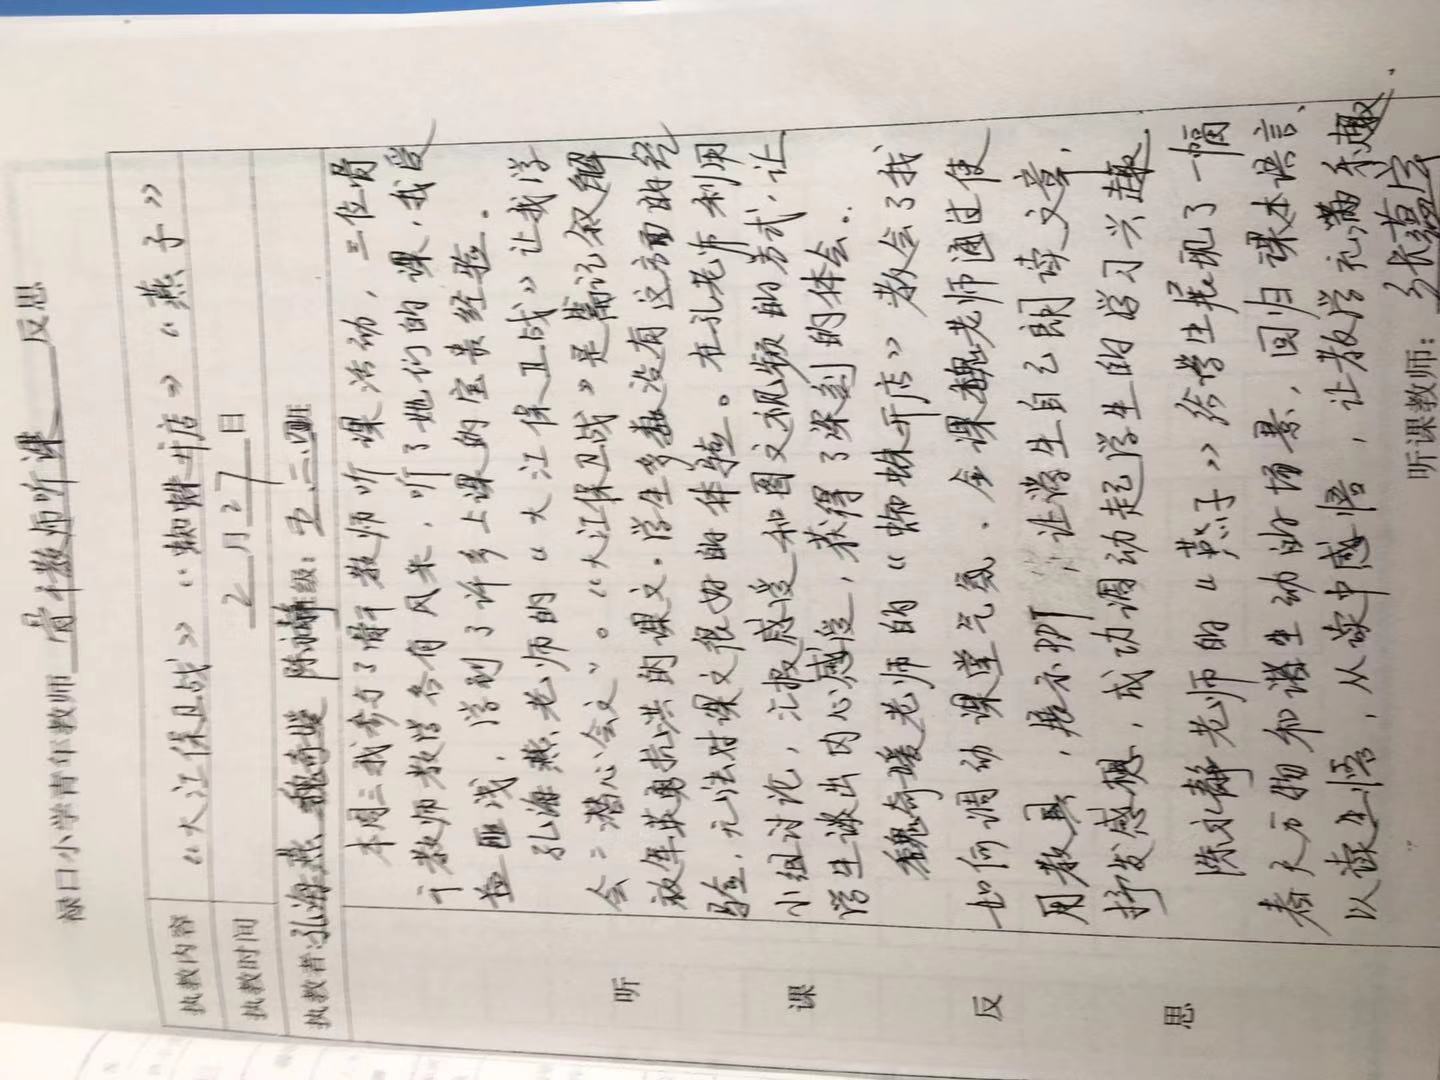 禄口小学青年教师 骨干教师听课 反思
执教内容 《大江保卫战》《蜘蛛开店》《燕子》
执教时间 2月27日
执教者:孔海燕 魏奇媛 陈永静 班级:五、三、四班
听课反思
本周三我参与了骨干教师听课活动,三位骨
干教师教学各有风采,听了她们的课,我受
益匪浅,学到了许多上课的宝贵经验。
孔海燕老师的《大江保卫战》让我学
会“潜心会文”。《大江保卫战》是篇记叙解
放军英勇抗洪的课文。学生多数没有这方面的经
验,无法对课文很好的体验。在孔老师利用
小组讨论,汇报感受和图文视频的方式,让
学生谈出内心感受,获得了深刻的体会..
魏奇媛老师的《蜘蛛开店》教会了我
如何调动课堂气氛.全课魏老师通过使
用教具,展示PPT,让学生自己朗读文章,
抒发感想,成功调动起学生的学习兴趣
陈永静老师的《燕子》给学生展现了一幅
春天万物和谐生动的场景,回归课本语言、
以读生悟,从读中感悟,让教学充满乐趣.
听课教师: